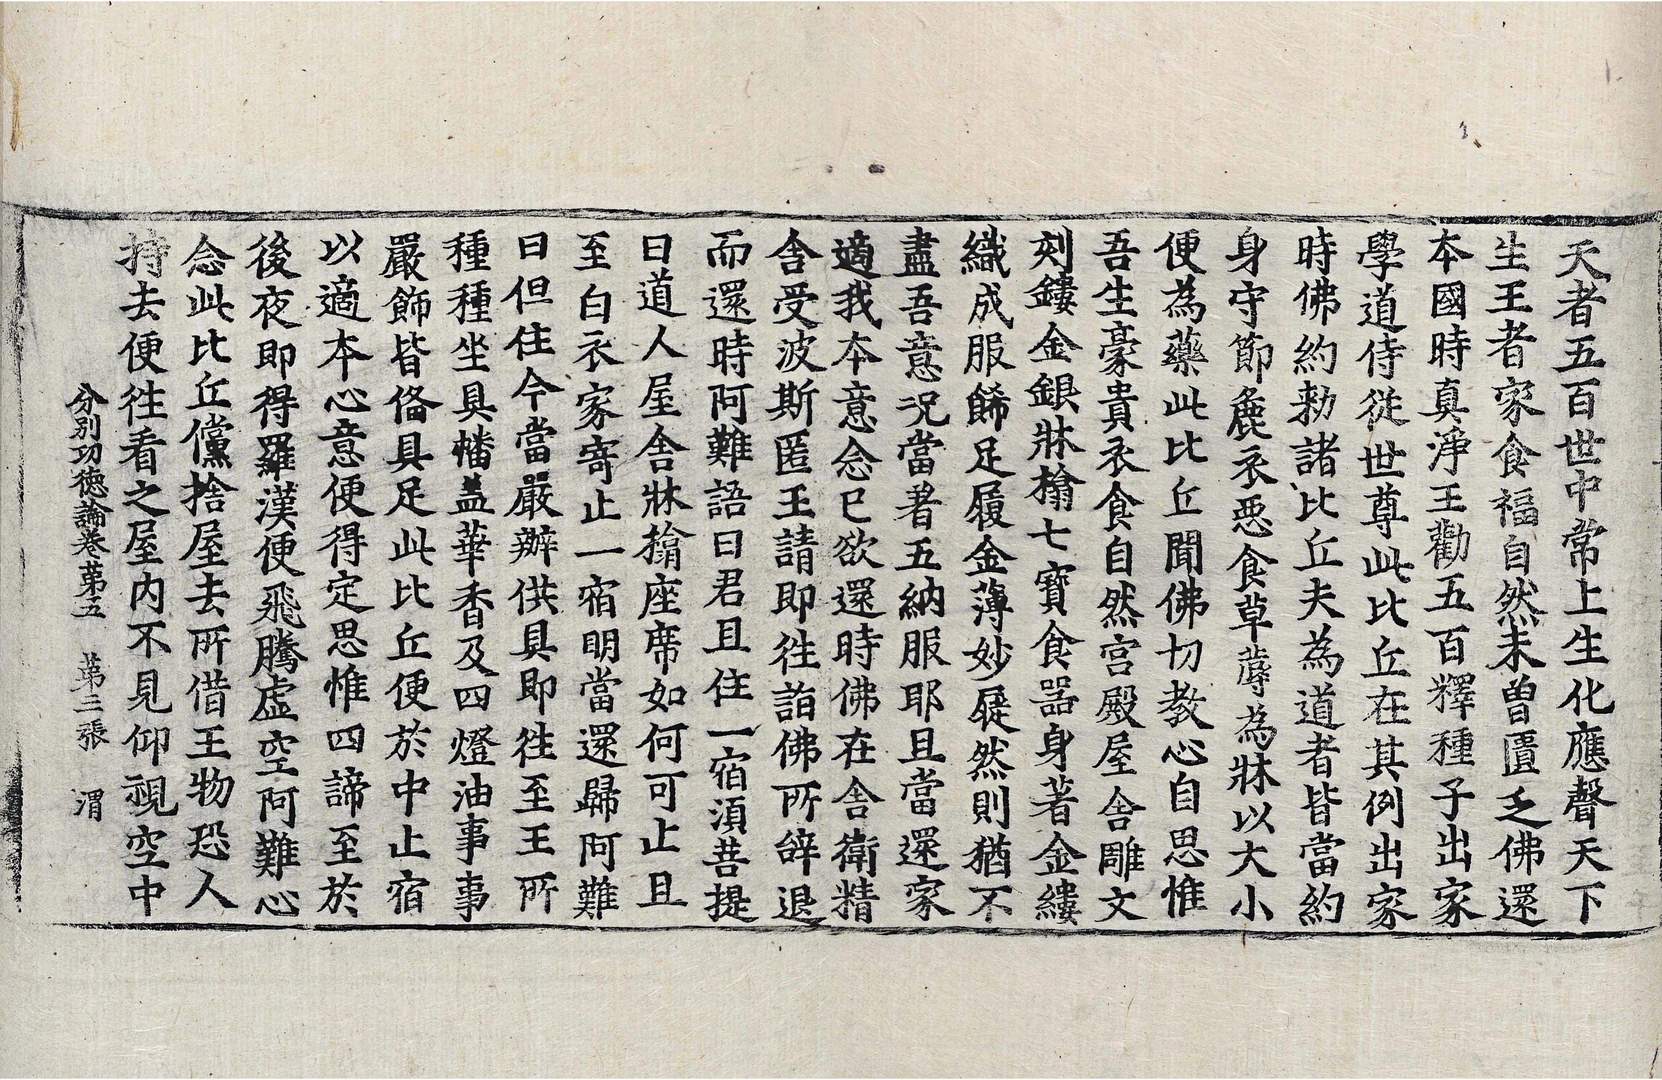 天者五百世中常上生化應聲天下
生王者家食福自然未曾匱乏佛還
本國時真淨王勸五百釋種子出家
學道侍從世尊此比丘在其例出家
時佛約勑諸比丘夫為道者皆當約
身守節麁衣惡食草蓐為牀以大小
便為藥此比丘聞佛切教心自思惟
吾生豪貴衣食自然宮殿屋舍雕文
刻鏤金銀牀榻七寶食器身著金縷
織成服餙足履金薄妙屣然則猶不
盡吾意況當著五納服耶且當還家
適我本意念已欲還時佛在舍衛精
舍受波斯匿王請即往詣佛所辝退
而還時阿難語曰君且住一宿湏菩提
曰道人屋舍牀榻座席如何可止且
至白衣家寄止一宿明當還歸阿難
曰但住今當嚴辦供具即往至王所
種種坐具幡蓋華香及四燈油事事
嚴飾皆俻具足此比丘便於中止宿
以適本心意便得定思惟四諦至於
後夜即得羅漢便飛騰虛空阿難心
念此比丘儻捨屋去所借王物恐人
持去便往看之屋內不見仰視空中
分別功德論卷苐五 苐三張 渭